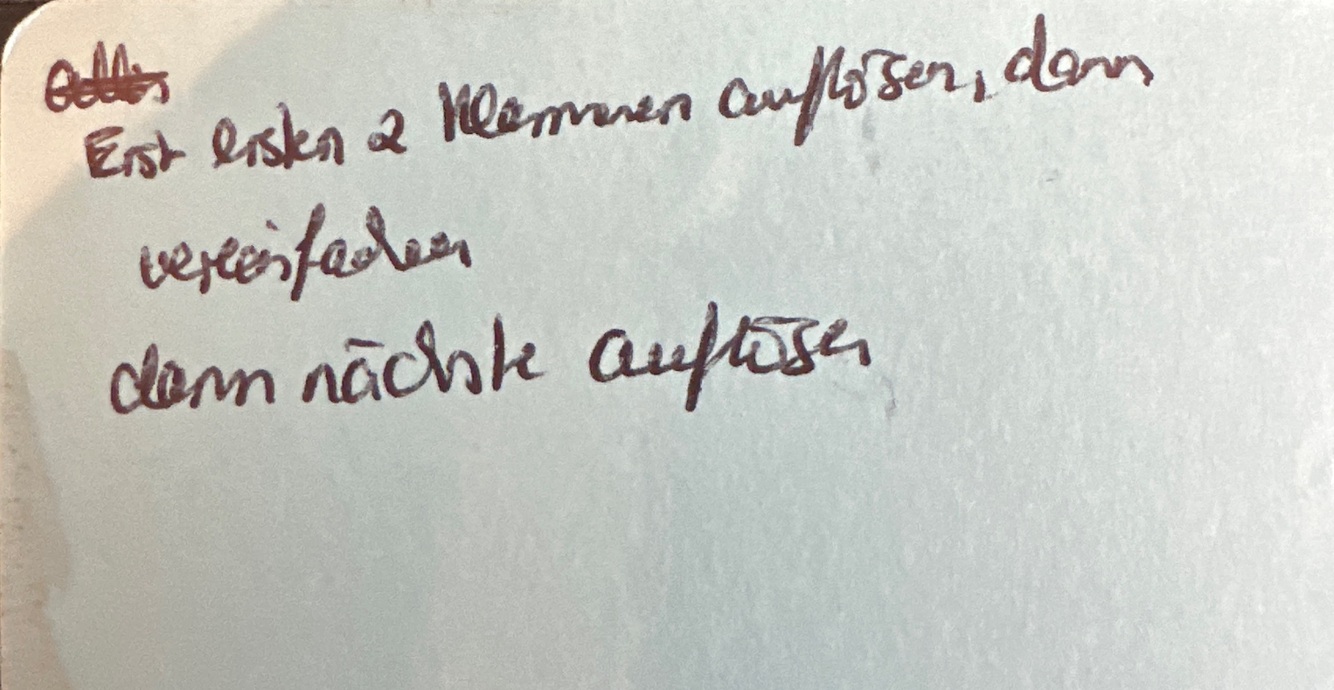 Erst ersten 2 Klammern auflösen, dann
vereinfachen
dann nächste auflösen